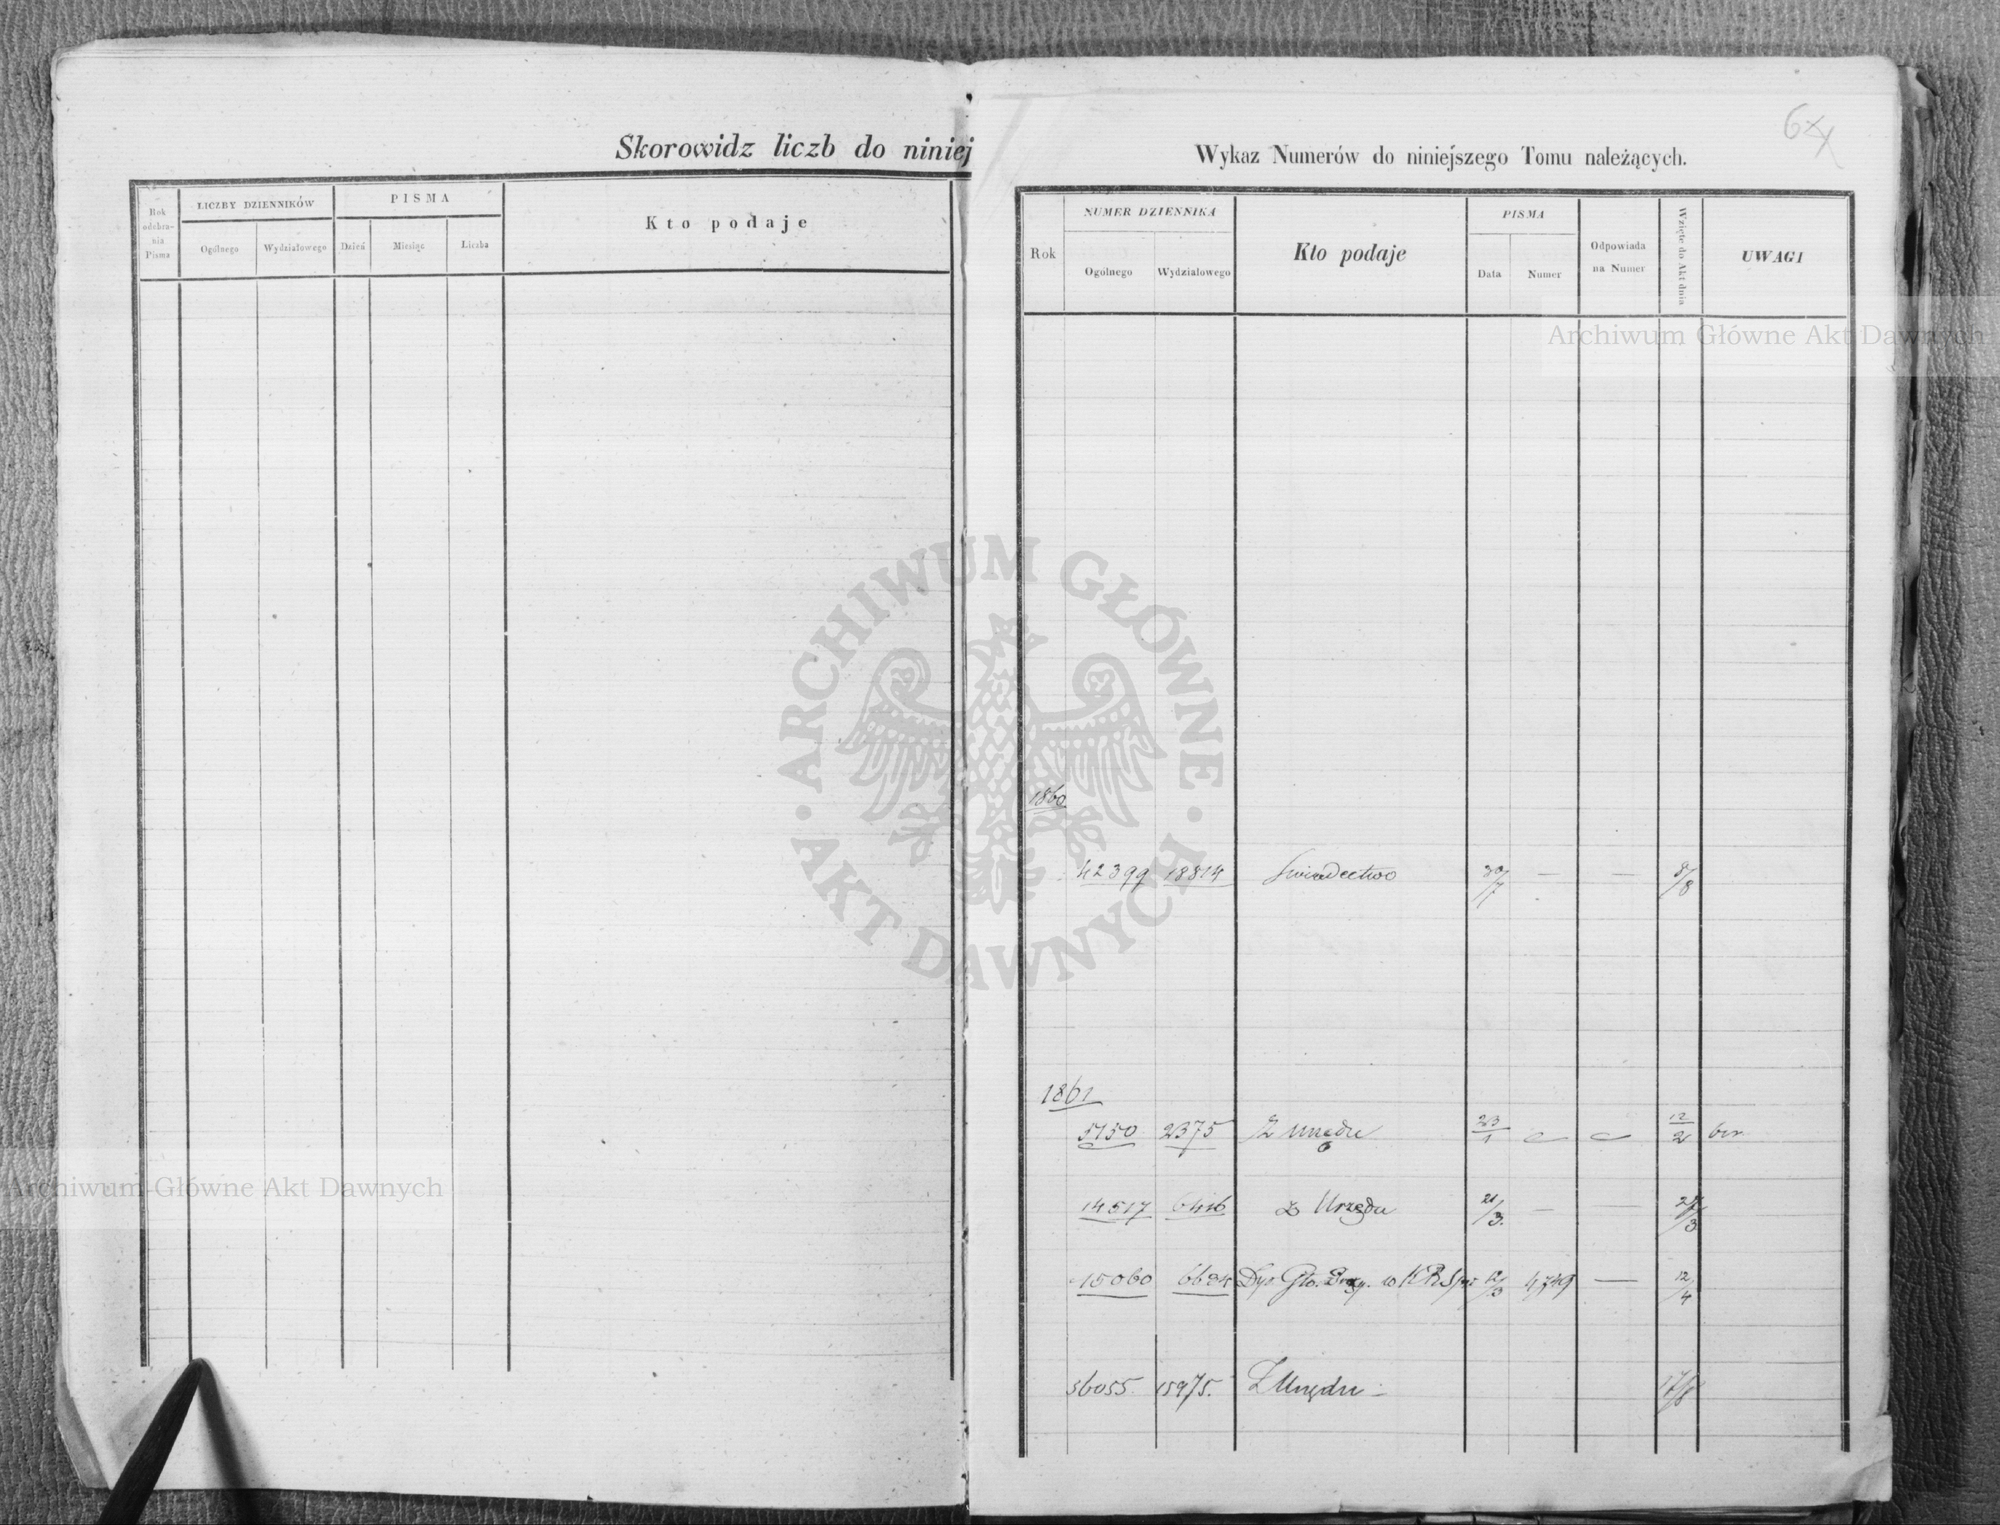 Skorowidz liczb do niniej
Rok odebrania Pisma
LICZBY DZIENNIKÓW
PISMA
Kto podaje
Ogólnego
Wydziałowego
Dzień
Miesiąc
Liczba
Wykaz Numerów do niniejszego Tomu należących.
Rok
NUMER DZIENNIKA
Kto podaje
PISMA
Odpowiada
na Numer
Wzięte do Akt dnia
UWAGI
Ogólnego
Wydziałowego
Data
Numer
Archiwum Główne Akt Dawnych
ARCHIWUM GŁÓWNE · AKT DAWNYCH ·
1860
42399 18814 Świadectwo 30/7 — — 8/8
1861
5150 2375 Z Urzędu 23/1 12/2
Archiwum Główne Akt Dawnych
14517 6416 Z Urzędu 21/3 — — 27/3
15060 w KRSpr 12/3 4749 — 12/4
36055 15975. Z Urzędu 17/8